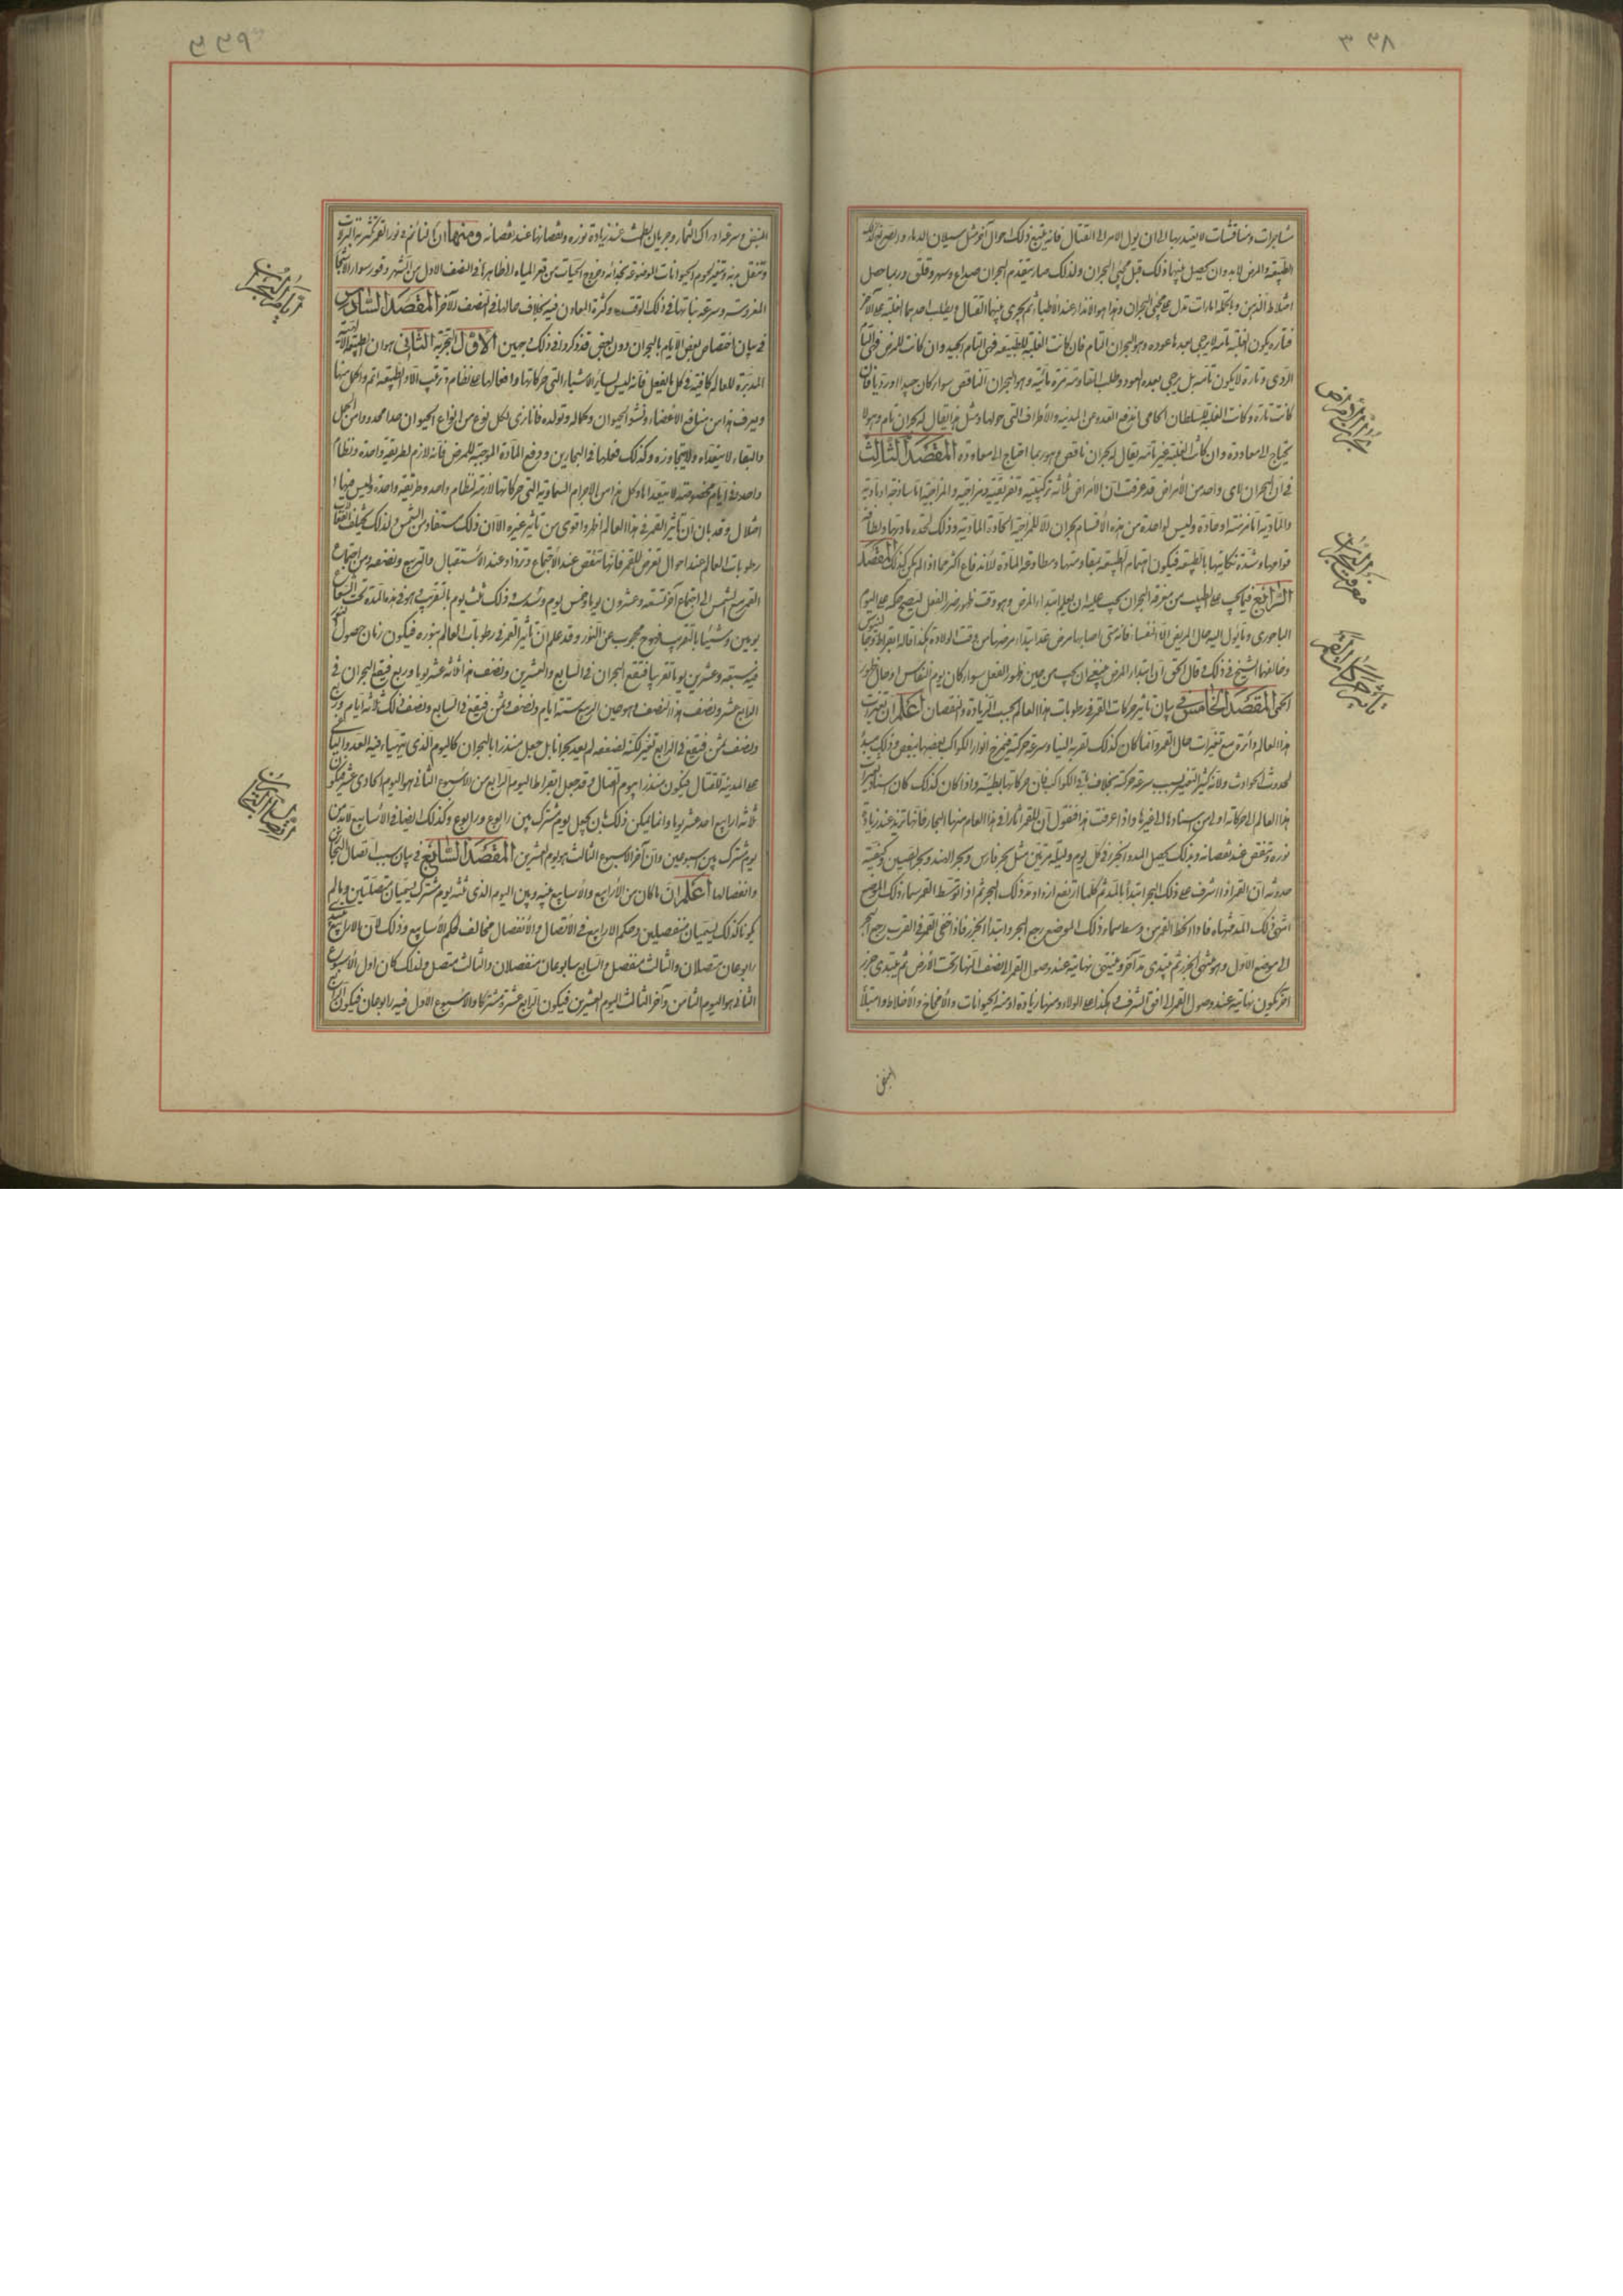 ٣٣٨
مشاجرات ومناقشات لا يعتد بها الى ان يول الامر الى القتال فانه يتبع ذلك احوال آخر مثل سيلان الدماء
الطبيعة والمرض لا بد وان يحصل بينهما ذلك قبل مجئ البحران ولذلك صار يتقدم البحران صداع وسهر وقلق وربما حصل
اختلاط الذهن وبالجملة امارات تدل على مجئ البحران وهذا هو الانذار عند الأطباء ثم يجرى بينهما القتال ويطلب احدهما الغلبة على الآخر
فتارة يكون الغلبة تامة لا يرجى بعدها عوده وهو البحران التام فان كانت الغلبة للطبيعة فهى التام الجيد وان كانت للمرض فهى التام
الردى وتارة لا يكون تامة بل يرجى بعده العود وطلب المقاومة مرة ثانية وهو البحران الناقص سواء كان جيدا او رديا فان
كانت تارة وكانت الغلبة للسلطان الحامى اندفع العدو عن المدينة والأطراف التى حولها ومثل هذا يقال له بحران تام وهو لا
يحتاج الى معاودة وان كانت الغلبة غير تامة يقال له بحران ناقص وهو ربما احتاج الى معاودة المقصد الثالث
فى ان البحران لاى واحد من الأمراض قد عرفت ان الأمراض ثلاثة تركيبية وتفرقية ومزاجية والمزاجية اما ساذجة او مادية
والمادية اما مزمنة او حادة وليس لواحدة من هذه الأقسام بحران الا للمزاجية الحادة المادية وذلك لحدة مادتها ولطافة
قوامها وشدة نكايتها بالطبيعة فيكون اهتمام الطبيعة بمقاومتها ومطاوعة المادة للاندفاع اكثر مما اذا لم يكن كذلك المقصد
الرابع فيما يجب على الطبيب من معرفة البحران يجب عليه ان يعلم ابتداء المرض وهو وقت ظهور ضرر الفعل ليصح حكمه على اليوم
الباحورى وما يؤول اليه حال المريض الا النفساء فانه متى اصابها مرض عد ابتداء مرضها من وقت الولادة هكذا قاله ابقراط وجالينوس
وخالفهما الشيخ فى ذلك وقال الحق ان ابتداء المرض ينبغى ان يحسب من حين ظهور الفعل سواء كان يوم النفاس او حال ظهور
الحمى المقصد الخامس فى بيان تاثير حركات القمر فى رطوبات هذا العالم بحسب الزيادة والنقصان اعلم ان تغيرات
هذا العالم دائرة مع تغيرات حال القمر وانما كان كذلك لقربه الينا وسرعة حركته فيمزج انوار الكواكب بعضها ببعض وذلك مبدأ
لحدوث الحوادث ولانه كثير التغير بسبب سرعة حركته بخلاف باقى الكواكب فان حركاتها بطيئة واذا كان كذلك كان اسناد تغيرات
هذا العالم الى حركاته اولى من اسنادها الى غيرها واذا عرفت هذا فنقول ان للقمر آثارا فى هذا العالم منها البحار فانها تزيد عند زيادة
نوره وتنقص عند نقصانه وبذلك يحصل المد والجزر فى كل يوم وليلة مرتين مثل بحر فارس وبحر الهند وبحر الصين وكيفية
حدوثه ان القمر اذا اشرف على ذلك البحر ابتدأ بالمد ثم كلما ارتفع ازداد مد ذلك البحر ثم اذا توسط القمر سماء ذلك الموضع
انتهى ذلك المد منتهاه فاذا انحط القمر من وسط سماء ذلك الموضع رجع البحر وابتدأ الجزر فاذا اختفى القمر فى الغرب رجع البحر
الى موضع الاول وهو منتهى الجزر ثم يبتدى مد آخر وينتهى نهايته عند وصول القمر الى نصف النهار تحت الأرض ثم يبتدى جزر
آخر يكون نهايته عند وصول القمر الى افق الشرق هكذا على الولاء ومنها زيادة ادمغة الحيوانات والأمخاخ والأخلاط وامتلاء
النبض
بحران الامراض
معرفة البحران
تاثير حركات القمر
٣٣٩
النبض وسرعة ادراك الثمار وجريان الطمث عند زيادة نوره ونقصانها عند نقصانه ومنها ان النائم فى نور القمر
وتنتقل وتتغير لحوم الحيوانات الموضوعة بحذائه وخروج الحيات من قعر المياه الى ظاهرها فى النصف الاول من الشهر
المغروسة وسرعة نباتها فى ذلك الوقت وكثرة المعادن فيه بخلاف حالها فى النصف الآخر المقصد السادس
فى بيان اختصاص بعض الأيام بالبحران دون بعض قد ذكروا فى ذلك وجهين الأول التجربة الثانى هو ان الطبيعة
المدبرة للعالم كافية فى كل بالفعل فانه ليس لسائر الأشياء التى حركاتها وافعالها على نظام وترتيب الا والطبيعة اتم واكمل منها
ويعرف هذا من منافع الأعضاء ونشو الحيوان وكماله وتولده فانا نرى لكل نوع من انواع الحيوان حدا محدودا من الحبل
والبقاء لا يتعداه ولا يتجاوزه وكذلك فعلها فى البحارين ودفع المادة الموجبة للمرض فانه لازم لطريقة واحدة ونظام
واحد فى ايام مخصوصة لا يتعداها وكل هذا من الاجرام السماوية التى حركاتها لازمة لنظام واحد وطريقة واحدة وليس فيها
اختلال وقد بان ان تاثير القمر فى هذا العالم اظهر واقوى من تاثير غيره الا ان ذلك مستفاد من الشمس ولذلك يختلف
رطوبات العالم عند احوال تعرض للقمر فانها تنقص عند الأجتماع وتزداد عند الاستقبال والتربيع ونصفه ومن اجتماع
القمر مع الشمس الى اجتماع آخر تسعة وعشرون يوما وخمس يوم وسدس وذلك ثلث يوم بالتقريب وهو فى هذه المدة تحت الشعاع
يومين وشيئا بالتقريب فهو محجوب عن النور وقد علم ان تأثير القمر فى رطوبات العالم بنوره فيكون زمان حصول النور
فيه ستة وعشرين يوما تقريبا فيقع البحران فى السابع والعشرين ونصف هذا ثلاثة عشر يوما وربع فيقع البحران فى
الرابع عشر ونصف هذا النصف وهو حين التربيع ستة ايام ونصف وثمن فيقع فى السابع ونصف ذلك ثلاثة ايام وربع
ونصف ثمن فيقع فى الرابع تغير لكنه لضعفه لم يعد بحرانا بل جعل منذرا بالبحران كاليوم الذى يتهياء فيه العدو
على المدينة للقتال فيكون منذرا بيوم القتال وقد جعل ابقراط اليوم الرابع من الأسبوع الثانى هو اليوم الحادى عشر فيكون
ثلاثة ارابيع احد عشر يوما وانما يمكن ذلك بان يجعل يوم مشترك بين رابوع ورابوع وكذلك ايضا فى الأسابيع لا بد من
يوم مشترك بين اسبوعين وان آخر الاسبوع الثالث هو يوم العشرين المقصد السابع فى بيان سبب اتصال البحارين
وانفصالها اعلم ان ما كان من الأرابيع والأسابيع بينه وبين اليوم الذى يليه يوم مشترك يسميان متصلين وما لم
يكونا كذلك يسميان منفصلين وحكم الارابيع فى الاتصال والأنفصال مخالف لحكم الأسابيع وذلك لان الارابيع
رابوعان متصلان والثالث منفصل والسابيع سابوعان منفصلان والثالث متصل ولذلك كان اول الأسبوع
الثانى هو اليوم الثامن وآخر الثالث اليوم العشرين فيكون الرابع عشر مشتركا والاسبوع الاول فيه رابوعان فيكون الرابع
ايام البحران
اتصال البحارين